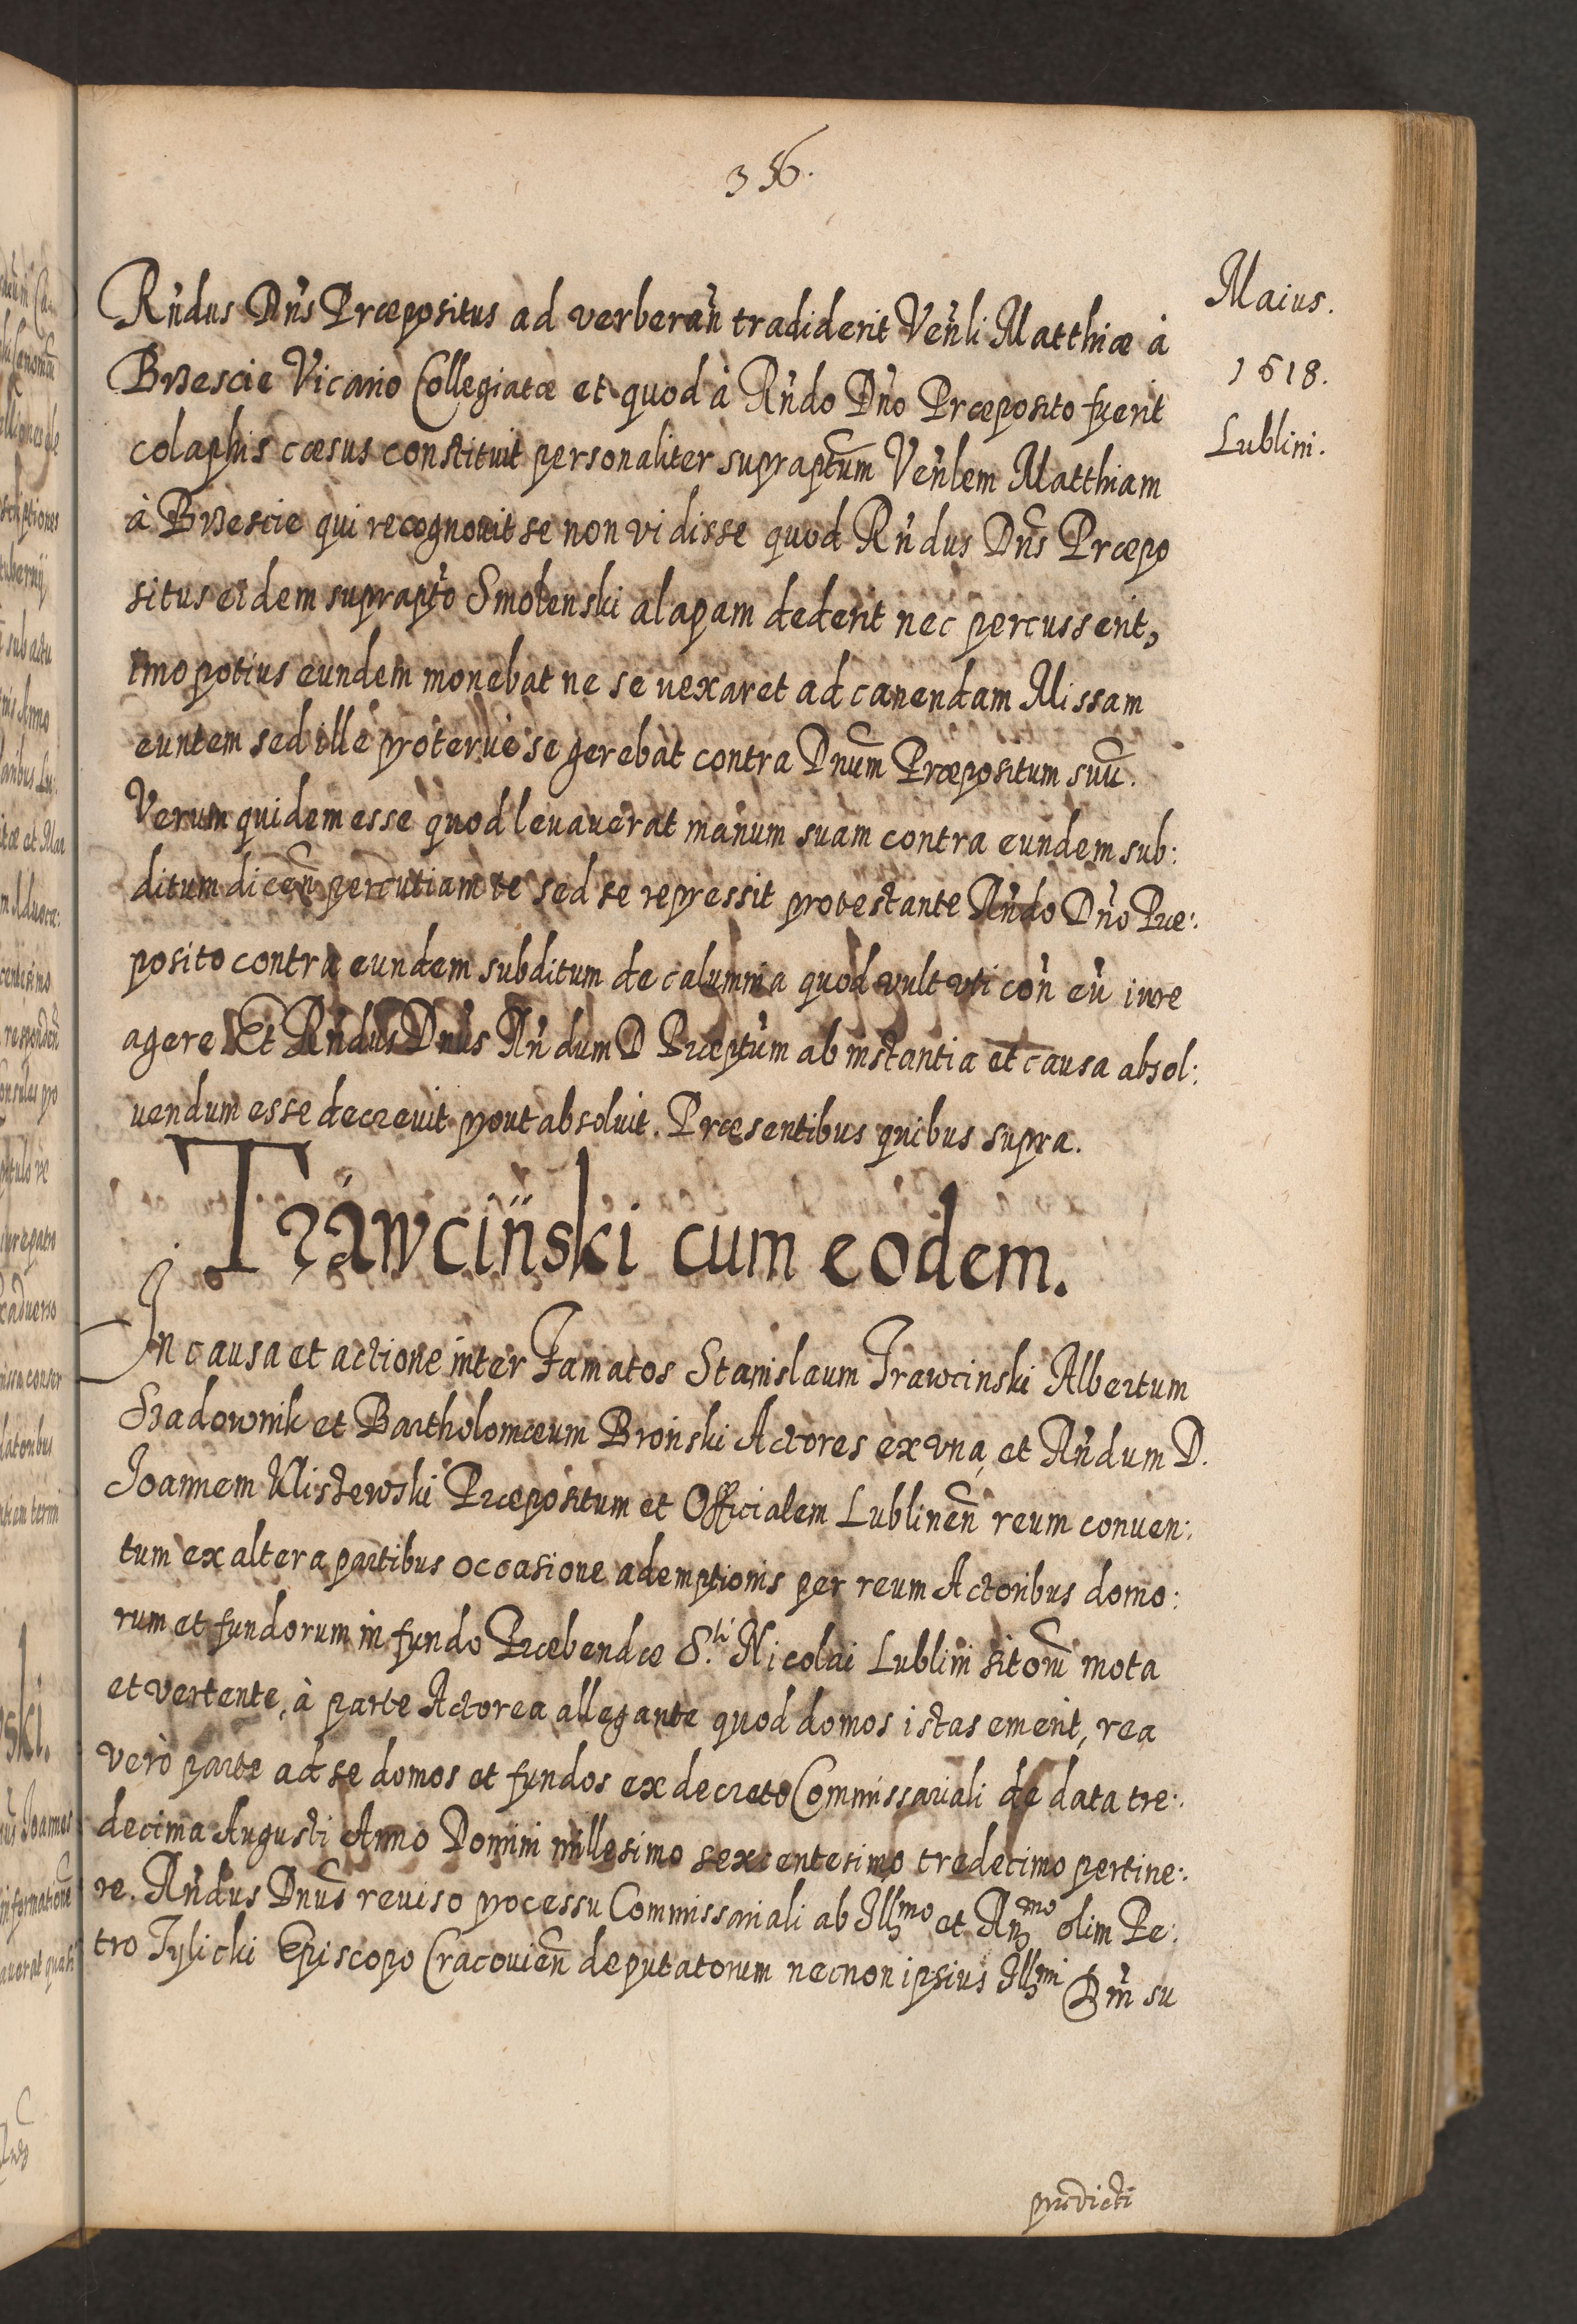 356.
Maius.
1618.
Lublini.
Rn̄dus Dn̄s Præpositus ad verberan̄ tradiderit Ven̄li Matthiæ à
Brzescie Vicario Collegiatæ et quod à Rn̄do Dn̄o Præposito fuerit
colaphis cæsus constituit personaliter suprap̄tum Ven̄lem Matthiam
à Brzescie qui recognouit se non vidisse quod Rn̄dus Dn̄s Præpo
situs eidem suprap̄to Smolenski alapam dederit nec percusserit,
imo potius eundem monebat ne se uexaret ad canendam Missam
euntem sed ille proterue se gerebat contra Dnum̄ Præpositum suū.
Verum quidem esse quod leuauerat manum suam contra eundem sub:
ditum dicen̄ percutiam te sed se repressit protestante Rn̄do Dn̄o Præ:
posito contra eundem subditum de calumnia quod vult vti con̄ eū iure
agere Et Rn̄dus Dnūs Rn̄dum D Præp̄tum ab instantia et causa absol:
uendum esse decreuit prout absoluit. Præsentibus quibus supra.
Trawcinski cum eodem.
In causa et actione inter Famatos Stanislaum Trawcinski Albertum
Szadownik et Bartholomæum Broinski Actores ex vna, et Rn̄dum D.
Joannem Klistewski Præpositum et Officialem Lublinen̄ reum conuen:
tum ex altera partibus occasione ademptionis per reum Actoribus domo:
rum et fundorum in fundo Præbendæ S.ti Nicolai Lublini sitorū mota
et vertente, à parte Actorea allegante quod domos istas emerit, rea
verò parte ad se domos et fundos ex decreto Commissariali de data tre:
decima Augusti Anno Domini millesimo sexcentesimo tredecimo pertine:
re. Rn̄dus Dnūs reuiso processu Commissariali ab Illmo et Rnmo olim Pe:
tro Tylicki Episcopo Cracouien̄ deputatorum necnon ipsius Illmi Dn̄i su
prædicti